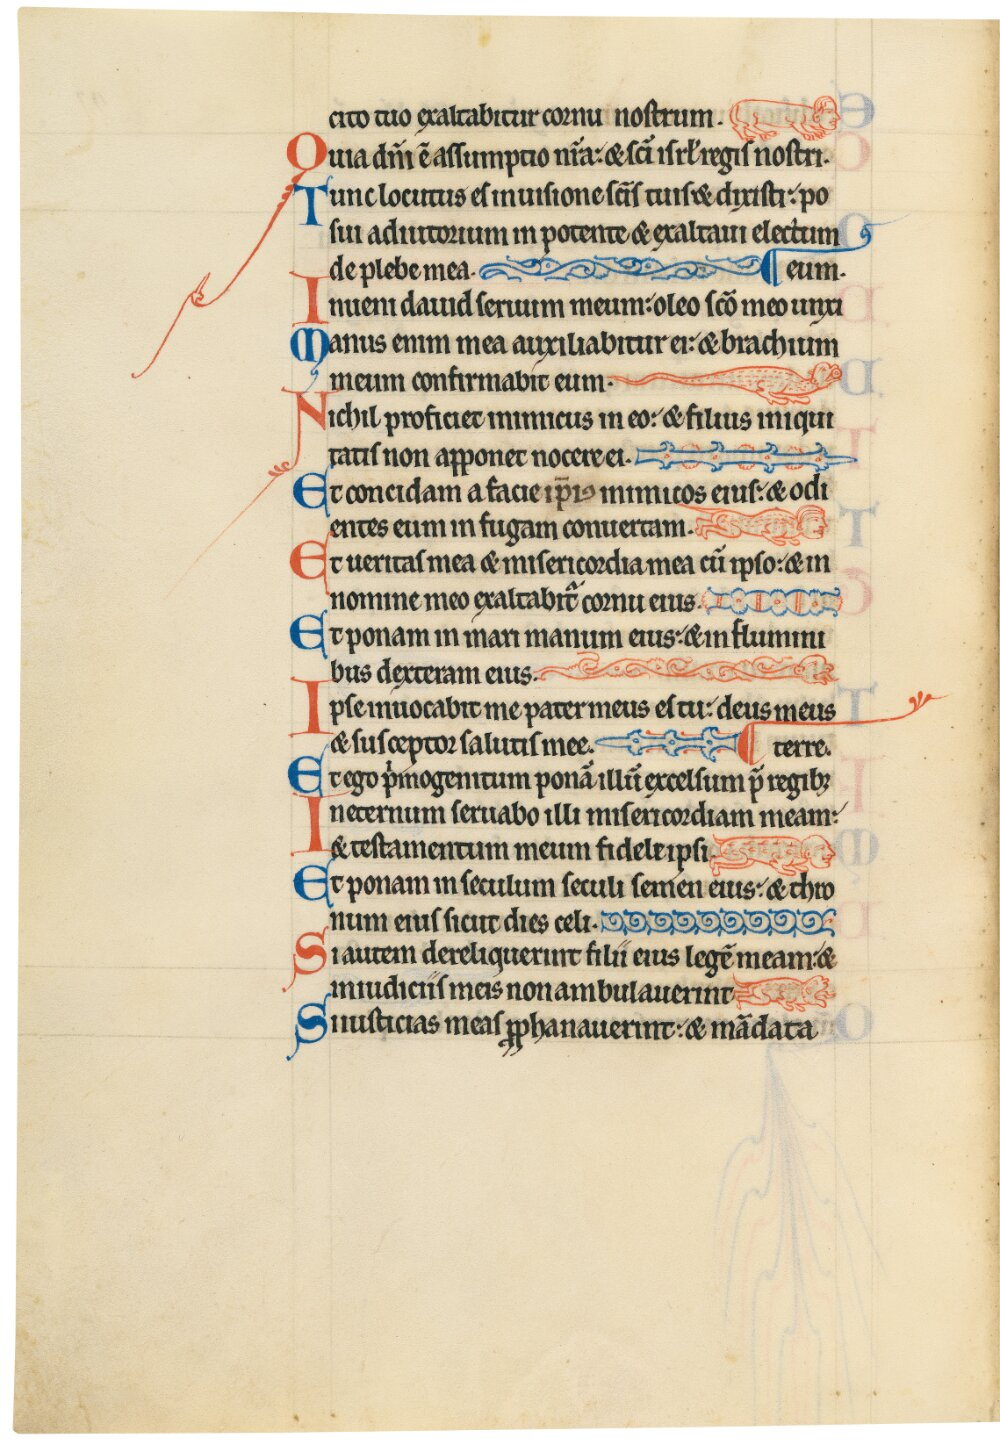 cito tuo exaltabitur cornu nostrum.
Quia dn̄i ē assumptio nr̄a: & sc̄i isrł regis nostri.
Tunc locutus es in uisione sc̄is tuis & dixisti: po
sui adiutorium in potente & exaltaui electum
de plebe mea. eum.
Inueni dauid seruum meum: oleo sc̄o meo unxi
Manus enim mea auxiliabitur ei: & brachium
meum confirmabit eum.
Nichil proficiet inimicus in eo: & filius iniqui
tatis non apponet nocere ei.
Et concidam a facie ip̄ius inimicos eius: & odi
entes eum in fugam conuertam.
Et ueritas mea & misericordia mea cū ipso: & in
nomine meo exaltabit᷑ cornu eius.
Et ponam in mari manum eius: & in flumini
bus dexteram eius.
Ipse inuocabit me pater meus es tu: deus meus
& susceptor salutis mee. terre.
Et ego p̍mogenitum ponā illū excelsum p̄ regibꝫ
In eternum seruabo illi misericordiam meam:
& testamentum meum fidele ipsi.
Et ponam in seculum seculi semen eius: & thro
num eius sicut dies celi.
Si autem dereliquerint filii eius legē meam: &
in iudiciis meis non ambulauerint
Si iusticias meas ꝓphanauerint: & mādata